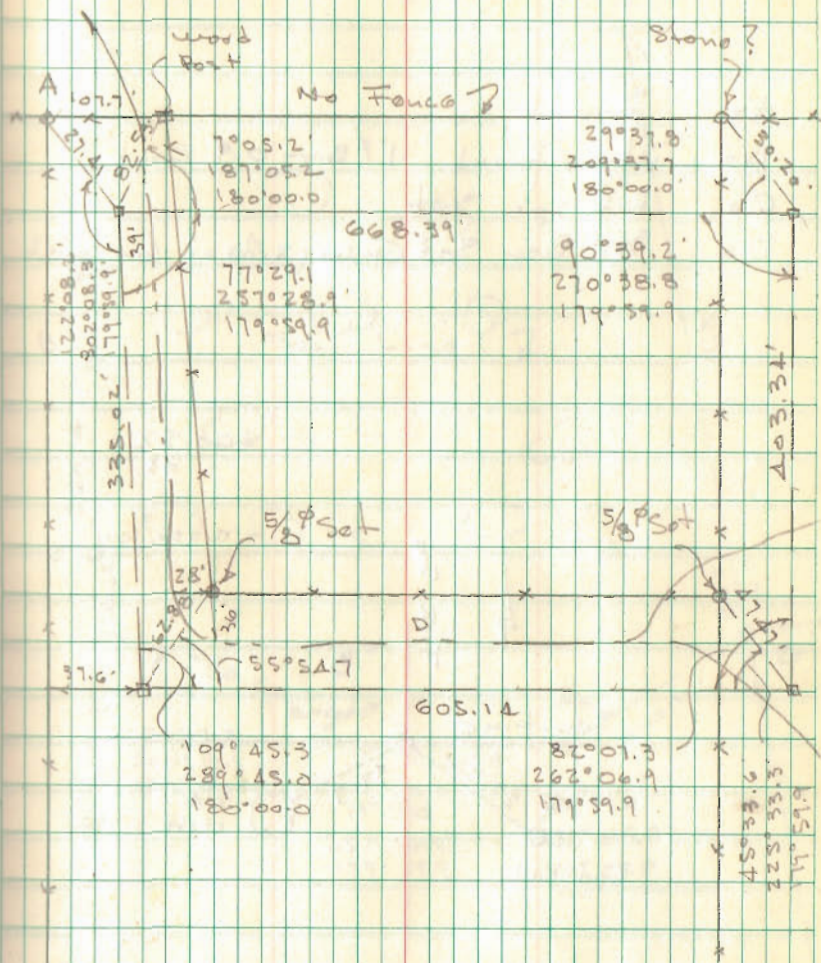 wood
Post
Stone?
A
107.7'
No Fence
27.4'
82.53'
7°05.2'
187°05.2
180°00.0
29°37.8'
209°37.7
180°00.0'
50.20'
39'
668.39'
122°08.2'
302°08.3
179°59.9'
77°29.1
257°28.9'
179°59.9
90°39.2'
270°38.8
179°59.9
335.02'
403.34'
5/8 ⌀ Set
5/8 ⌀ Set
28'
62.88'
36'
D
47.47'
37.6'
55°54.7
605.14
109°45.3
289°45.0
180°00.0
82°07.3
262°06.9
179°59.9
45°33.6
225°33.3
179°59.9